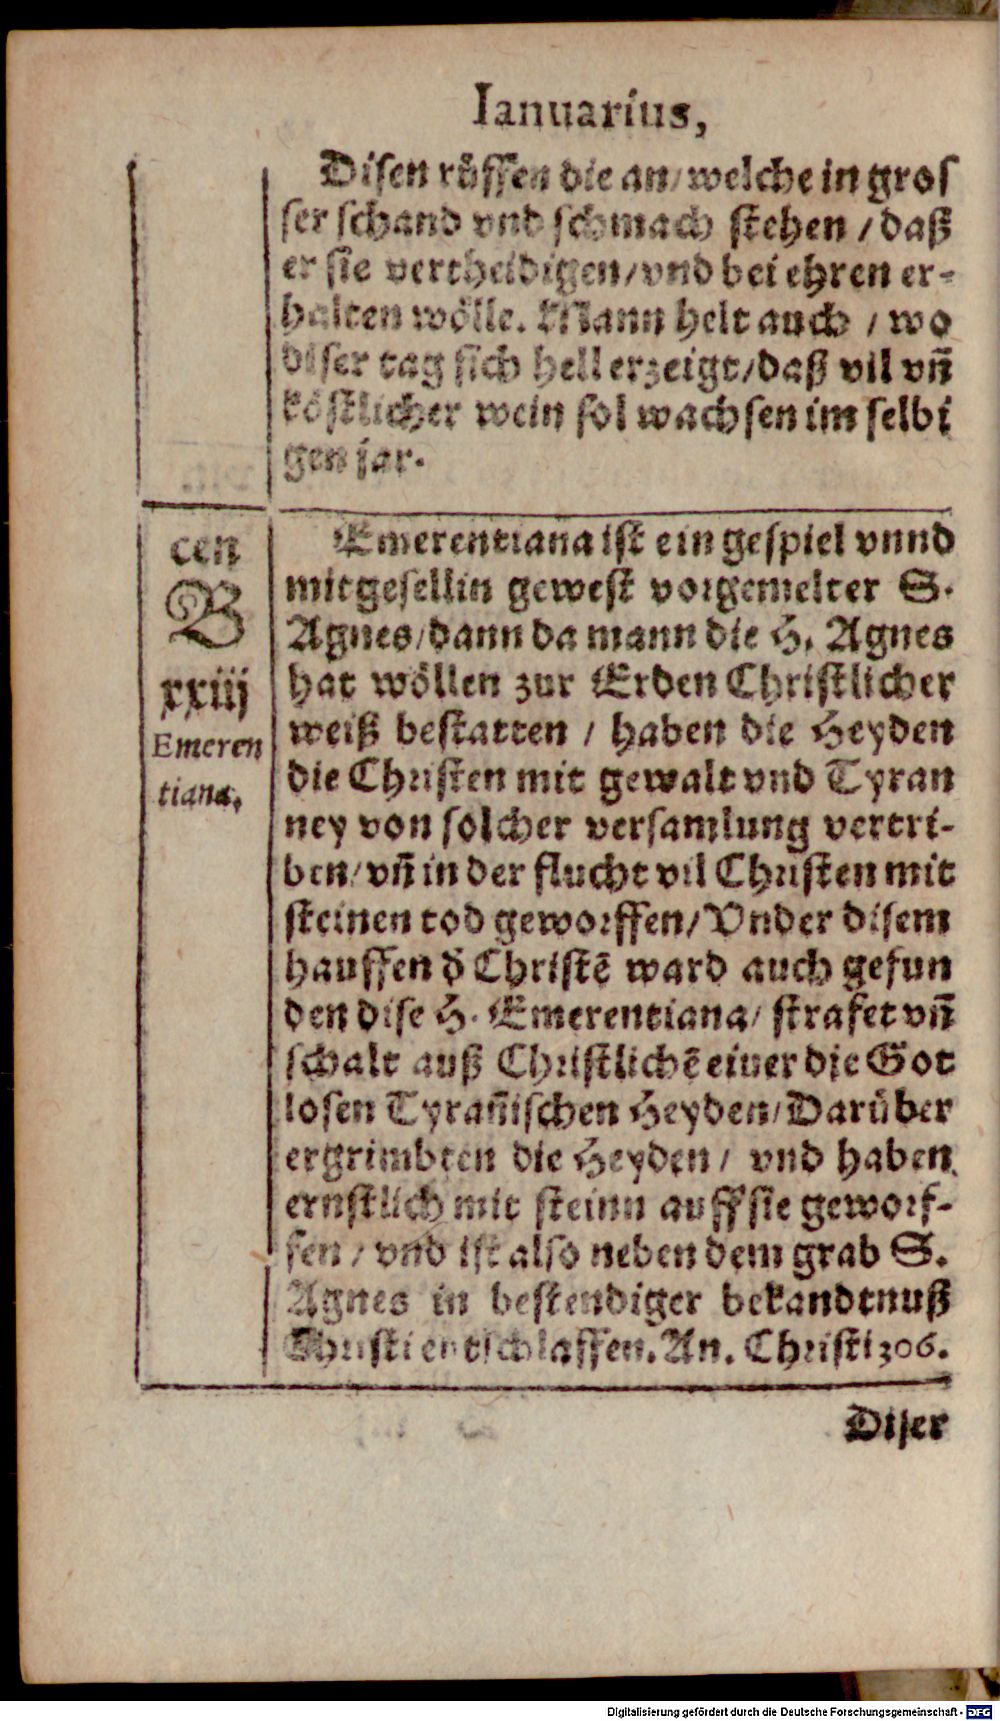 Ianuarius,
Disen růffen die an/welche in gros
ser schand vnd schmach stehen / daß
er sie vertheidigen/vnd bei ehren er-
halten wölle. Mann helt auch / wo
diser tag sich hell erzeigt/daß vil vñ
köstlicher wein sol wachsen im selbi
gen jar.
cen
B
xxiij
Emeren
tiana,
Emerentiana ist ein gespiel vnnd
mitgesellin gewest vorgemelter S.
Agnes/dann da mann die H. Agnes
hat wöllen zur Erden Christlicher
weiß bestatten / haben die Heyden
die Christen mit gewalt vnd Tyran
ney von solcher versamlung vertri-
ben/vñ in der flucht vil Christen mit
steinen tod geworffen/Vnder disem
hauffen d̕ Christē ward auch gefun
den dise H. Emerentiana/ strafet vñ
schalt auß Christlichē eiuer die Got
losen Tyrañischen Heyden/Darüber
ergrimbten die Heyden / vnd haben
ernstlich mit steinn auff sie geworf-
fen / vnd ist also neben dem grab S.
Agnes in bestendiger bekandtnuß
Christi entschlaffen. An. Christi 306.
Diser
Digitalisierung gefördert durch die Deutsche Forschungsgemeinschaft - DFG